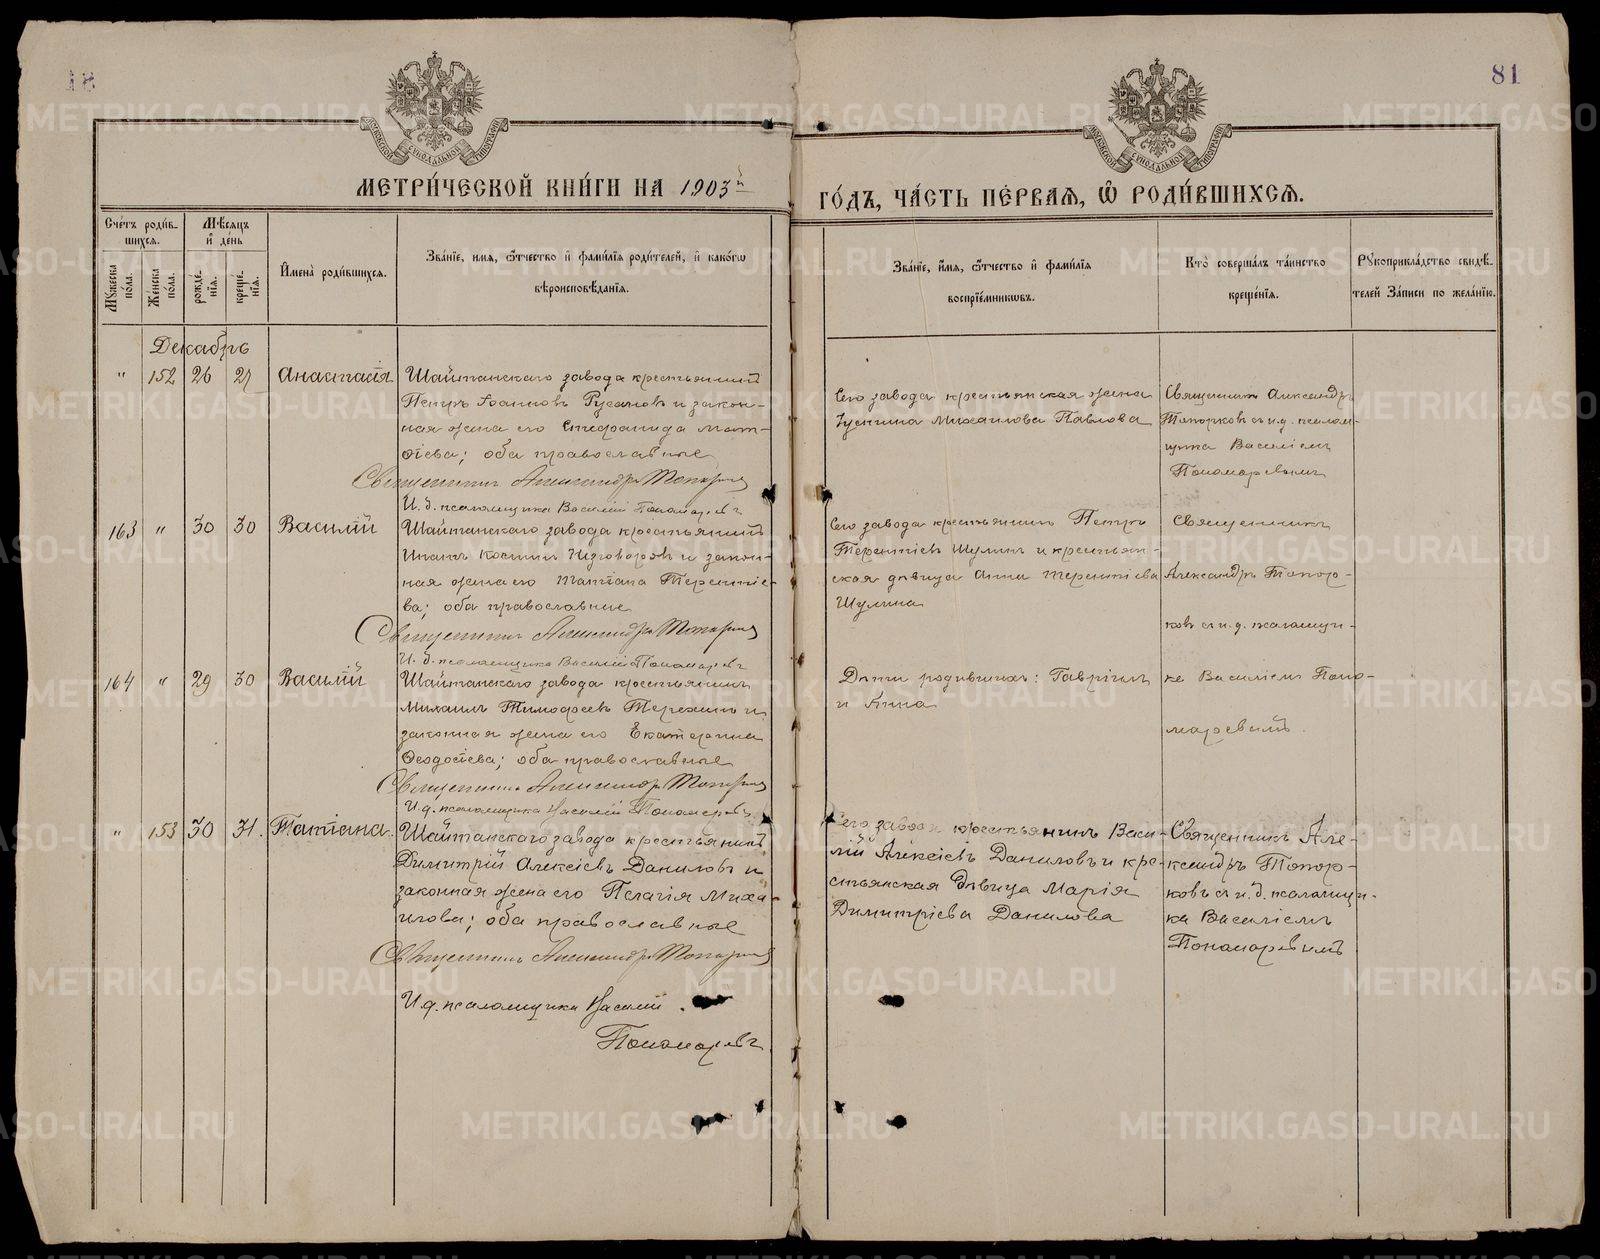 18
81
МОСКОВСКОЙ СѴНОДАЛЬНОЙ ТИПОГРАФІИ
МОСКОВСКОЙ СѴНОДАЛЬНОЙ ТИПОГРАФІИ
МЕТРИ́ЧЕСКОЙ КНИ́ГИ НА 1903й
ГО́ДЪ, ЧА́СТЬ ПЕ́РВАѦ, Ѽ РОДИ́ВШИХСѦ.
Сче́тъ роди́в-
шихсѧ.
Мѣсѧцъ
и҆ де́нь
Мꙋжеска по́ла.
Же́нска по́ла.
рожде́нїѧ.
креще́нїѧ.
И҆мена̀ роди́вшихсѧ.
Зва́нїе, имѧ, ѻ҆́тчество и҆ фами́лїѧ роди́телей, и҆ како́гѡ
вѣроисповѣ́данїѧ.
Зва́нїе, и҆́мѧ, ѻ҆́тчество и҆ фами́лїѧ
воспрїе́мникѡвъ.
Кто̀ соверша́лъ та́инство
креще́нїѧ.
Рꙋкоприкла́дство свидѣ́-
телей За́писи по жела́нїю.
Декабрь
" 152 26 27 Анастасія
Шайтанскаго завода крестьянинъ
Петръ Іоанновъ Русаковъ и закон-
ная жена его Стефанида Мат-
ѳіева; оба православные
Священникъ Александръ Топорковъ
И. д. псаломщика Василій Пономаревъ
Сего завода крестьянская жена
Михаилова Павлова
Священникъ Александръ
Топорковъ съ и. д. псалом-
щика Василіемъ
Пономаревымъ
163 " 30 30 Василій
Шайтанскаго завода крестьянинъ
Игнатъ Косминъ Изговоровъ и закон-
ная жена его Татіана Терентіе-
ва; оба православные
Священникъ Александръ Топорковъ
И. д. псаломщика Василій Пономаревъ
Сего завода крестьянинъ Петръ
Терентіевъ Шулинъ и крестьян-
ская дѣвица Анна Терентіева
Шулина
Священникъ
Александръ Топор-
ковъ съ и. д. псаломщи-
164 " 29 30 Василій
Шайтанскаго завода крестьянинъ
Михаилъ Тимофеевъ Терехинъ и
законная жена его Екатерина
Ѳеодосіева; оба православные
Священникъ Александръ Топорковъ
И. д. псаломщика Василій Пономаревъ
Дѣти родившихъ: Гавріилъ
и Анна
ка Василіемъ Поно-
маревымъ.
" 153 30 31. Татіана.
Шайтанскаго завода крестьянинъ
Димитрій Алексіевъ Даниловъ и
законная жена его Пелагія Миха-
илова; оба православные
Священникъ Александръ Топорковъ
И. д. псаломщика Василій
Пономаревъ
Сего завода крестьянинъ Васи-
лій Алексіевъ Даниловъ и кре-
стьянская дѣвица Марія
Димитріева Данилова
Священникъ Але-
ксандръ Топор-
ковъ съ и. д. псаломщи-
ка Василіемъ
Пономаревымъ
METRIKI.GASO-URAL.RU